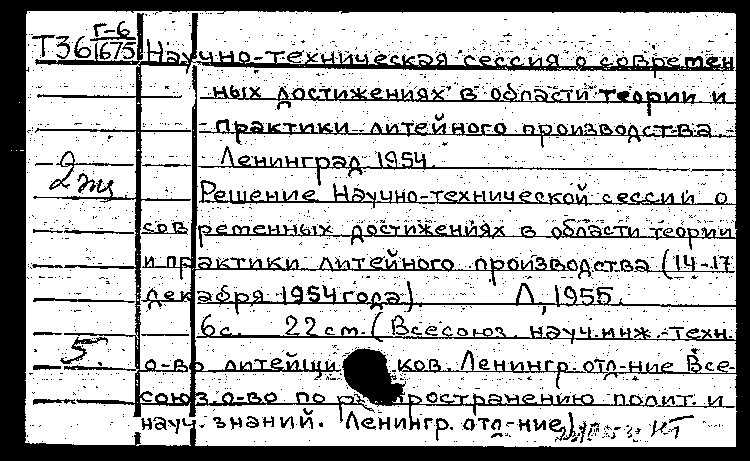 Т36 Г-6/1675 Научно-техническая сессия о современ
ных достижениях в области теории и
практики литейного производства
Ленинград 1954.
2 экз
Решение Научно-технической сессии о
современных достижениях в области теории
и практики литейного производства (14-17
декабря 1954 года). Л, 1955.
6с. 22 см. (Всесоюз. науч.инж.-техн.
5.
о-во литейщиков. Ленингр. отд-ние Все-
союз. о-во по распространению полит. и
науч. знаний. Ленингр. отд-ние)